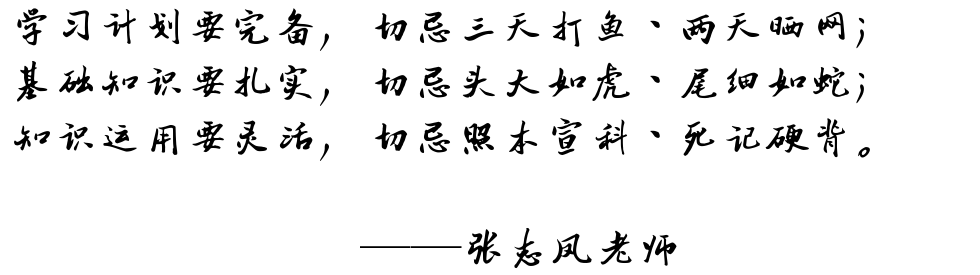 学习计划要完备，切忌三天打鱼、两天晒网；
基础知识要扎实，切忌头大如虎、尾细如蛇；
知识运用要灵活，切忌照本宣科、死记硬背。
———张志凤老师